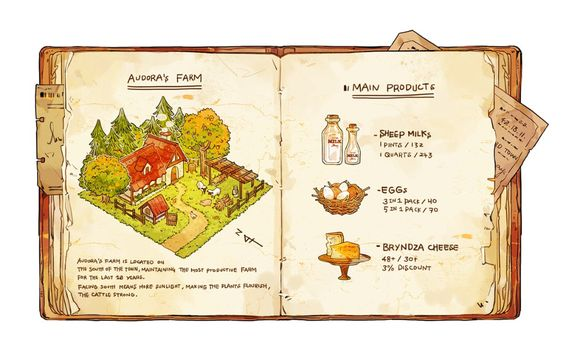 AUDORA'S FARM
AUDORA'S FARM IS LOCATED ON
THE SOUTH OF THE TOWN, MAINTAINING THE MOST PRODUCTIVE FARM
FOR THE LAST 28 YEARS.
FACING SOUTH MEANS MORE SUNLIGHT, MAKING THE PLANTS FLOURISH,
THE CATTLE STRONG.
MAIN PRODUCTS
MILK
- SHEEP MILKS
1 PINTS / 132
1 QUARTS / 243
- EGGS
3 IN 1 PACK / 40
5 IN 1 PACK / 70
- BRYNDZA CHEESE
48+ / 30+
3% DISCOUNT